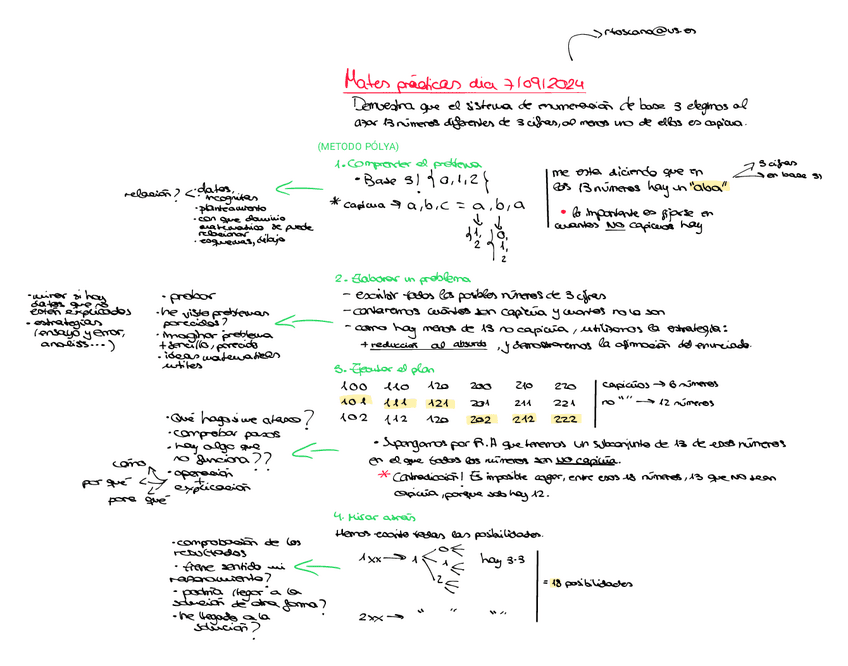 rtoscano@us.es
Mates prácticas dia 7/09/2024
Demuestra que el sistema de enumeración de base 3 elegimos al
azar 13 números diferentes de 3 cifras, al menos uno de ellos es capicua.
(METODO PÓLYA)
1. Comprender el problema
• Base 3! {0,1,2}
* capicua → a,b,c = a,b,a
1, 0,
2 1,
2
me esta diciendo que en
los 13 números hay un "aba"
3 cifras
en base 3!
• lo importante es fijarse en
cuantos NO capicuas hay
relación?
• datos,
• incognitas
• planteamiento
• con que dominio
matematico se puede
relacionar
• esquemas, dibujo
2. Elaborar un problema
- escribir todos los posibles números de 3 cifras
- contaremos cuántos son capicua y cuantos no lo son
- como hay menos de 13 no capicua, utilizamos la estrategia:
+ reduccion al absurdo, y demostraremos la afirmación del enunciado.
• mirar si hay
datos que no
estén explicados
• estrategias
(ensayo y error,
analisis...)
• probar
• he visto problemas
parecidos?
• Imaginar problema
+ sencillo, parecido
• ideas matematicas
utiles
3. Ejecutar el plan
100 110 120 200 210 220
101 111 121 201 211 221
102 112 120 202 212 222
capicuas → 6 números
no "" → 12 números
• Supongamos por R.A que tenemos un subconjunto de 13 de esos números
en el que todos los números son NO capicua.
* Contradicción! Es imposible coger, entre esos 18 números, 13 que NO sean
capicua, porque solo hay 12.
• Qué hago si me atasco?
• comprobar pasos
• hay algo que
no funciona??
• operación
+
explicación
cómo
por qué
para qué
4. Mirar atrás
Hemos escrito todas las posibilidades.
1xx → 1
0
1
2
hay 3·3
2xx → " " " "
= 18 posibilidades
• comprobación de los
resultados
• tiene sentido mi
razonamiento?
• podría llegar a la
solución de otra forma?
• he llegado a la
solución?